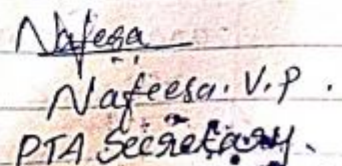 Nafeesa
Nafeesa. V.P.
PTA Secretary.